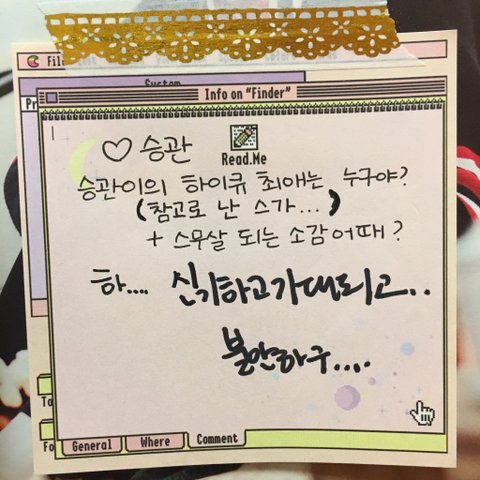 File
System
Info on "Finder"
Read.Me
♡ 승관
승관이의 하이큐 최애는 누구야?
(참고로 난 스가...)
+ 스무살 되는 소감 어때?
하.... 신기하고 기대되고..
불안하구....
General Where Comment